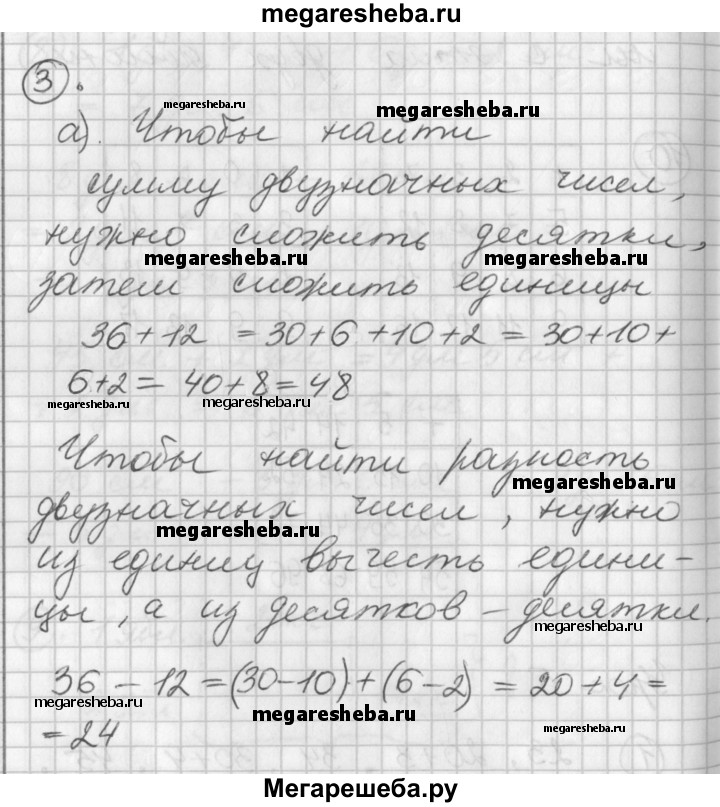 megaresheba.ru
3.
megaresheba.ru
megaresheba.ru
а). Чтобы найти
сумму двузначных чисел,
нужно сложить десятки,
megaresheba.ru
megaresheba.ru
затем сложить единицы
36+12 = 30+6+10+2 = 30+10+
6+2 = 40+8 = 48
megaresheba.ru
megaresheba.ru
Чтобы найти разность
megaresheba.ru
двузначных чисел, нужно
megaresheba.ru
из единиц вычесть едини-
цы, а из десятков – десятки.
megaresheba.ru
36 – 12 = (30–10)+(6–2) = 20+4=
megaresheba.ru
megaresheba.ru
megaresheba.ru
=24
Мегарешеба.ру